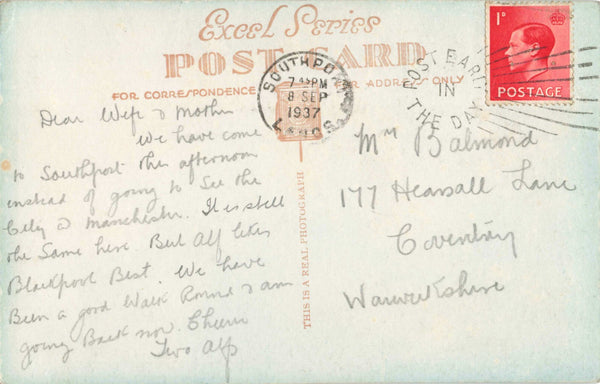 Excel Series
POST CARD
FOR CORRESPONDENCE
FOR ADDRESS ONLY
SOUTHPORT
7 45 PM
8 SEP
1937
LANCS.
POST EARLY
IN
THE DAY
1D
POSTAGE
THIS IS A REAL PHOTOGRAPH
Dear Wife & Mother
We have come
to Southport this afternoon
instead of going to See the
City @ Manchester. It is still
the Same here. But Alf likes
Blackpool Best. We have
Been a good Walk Round & am
going Back now. Cheerio
Two Alfs
Mrs Balmond
177 Hearsall Lane
Coventry
Warwickshire